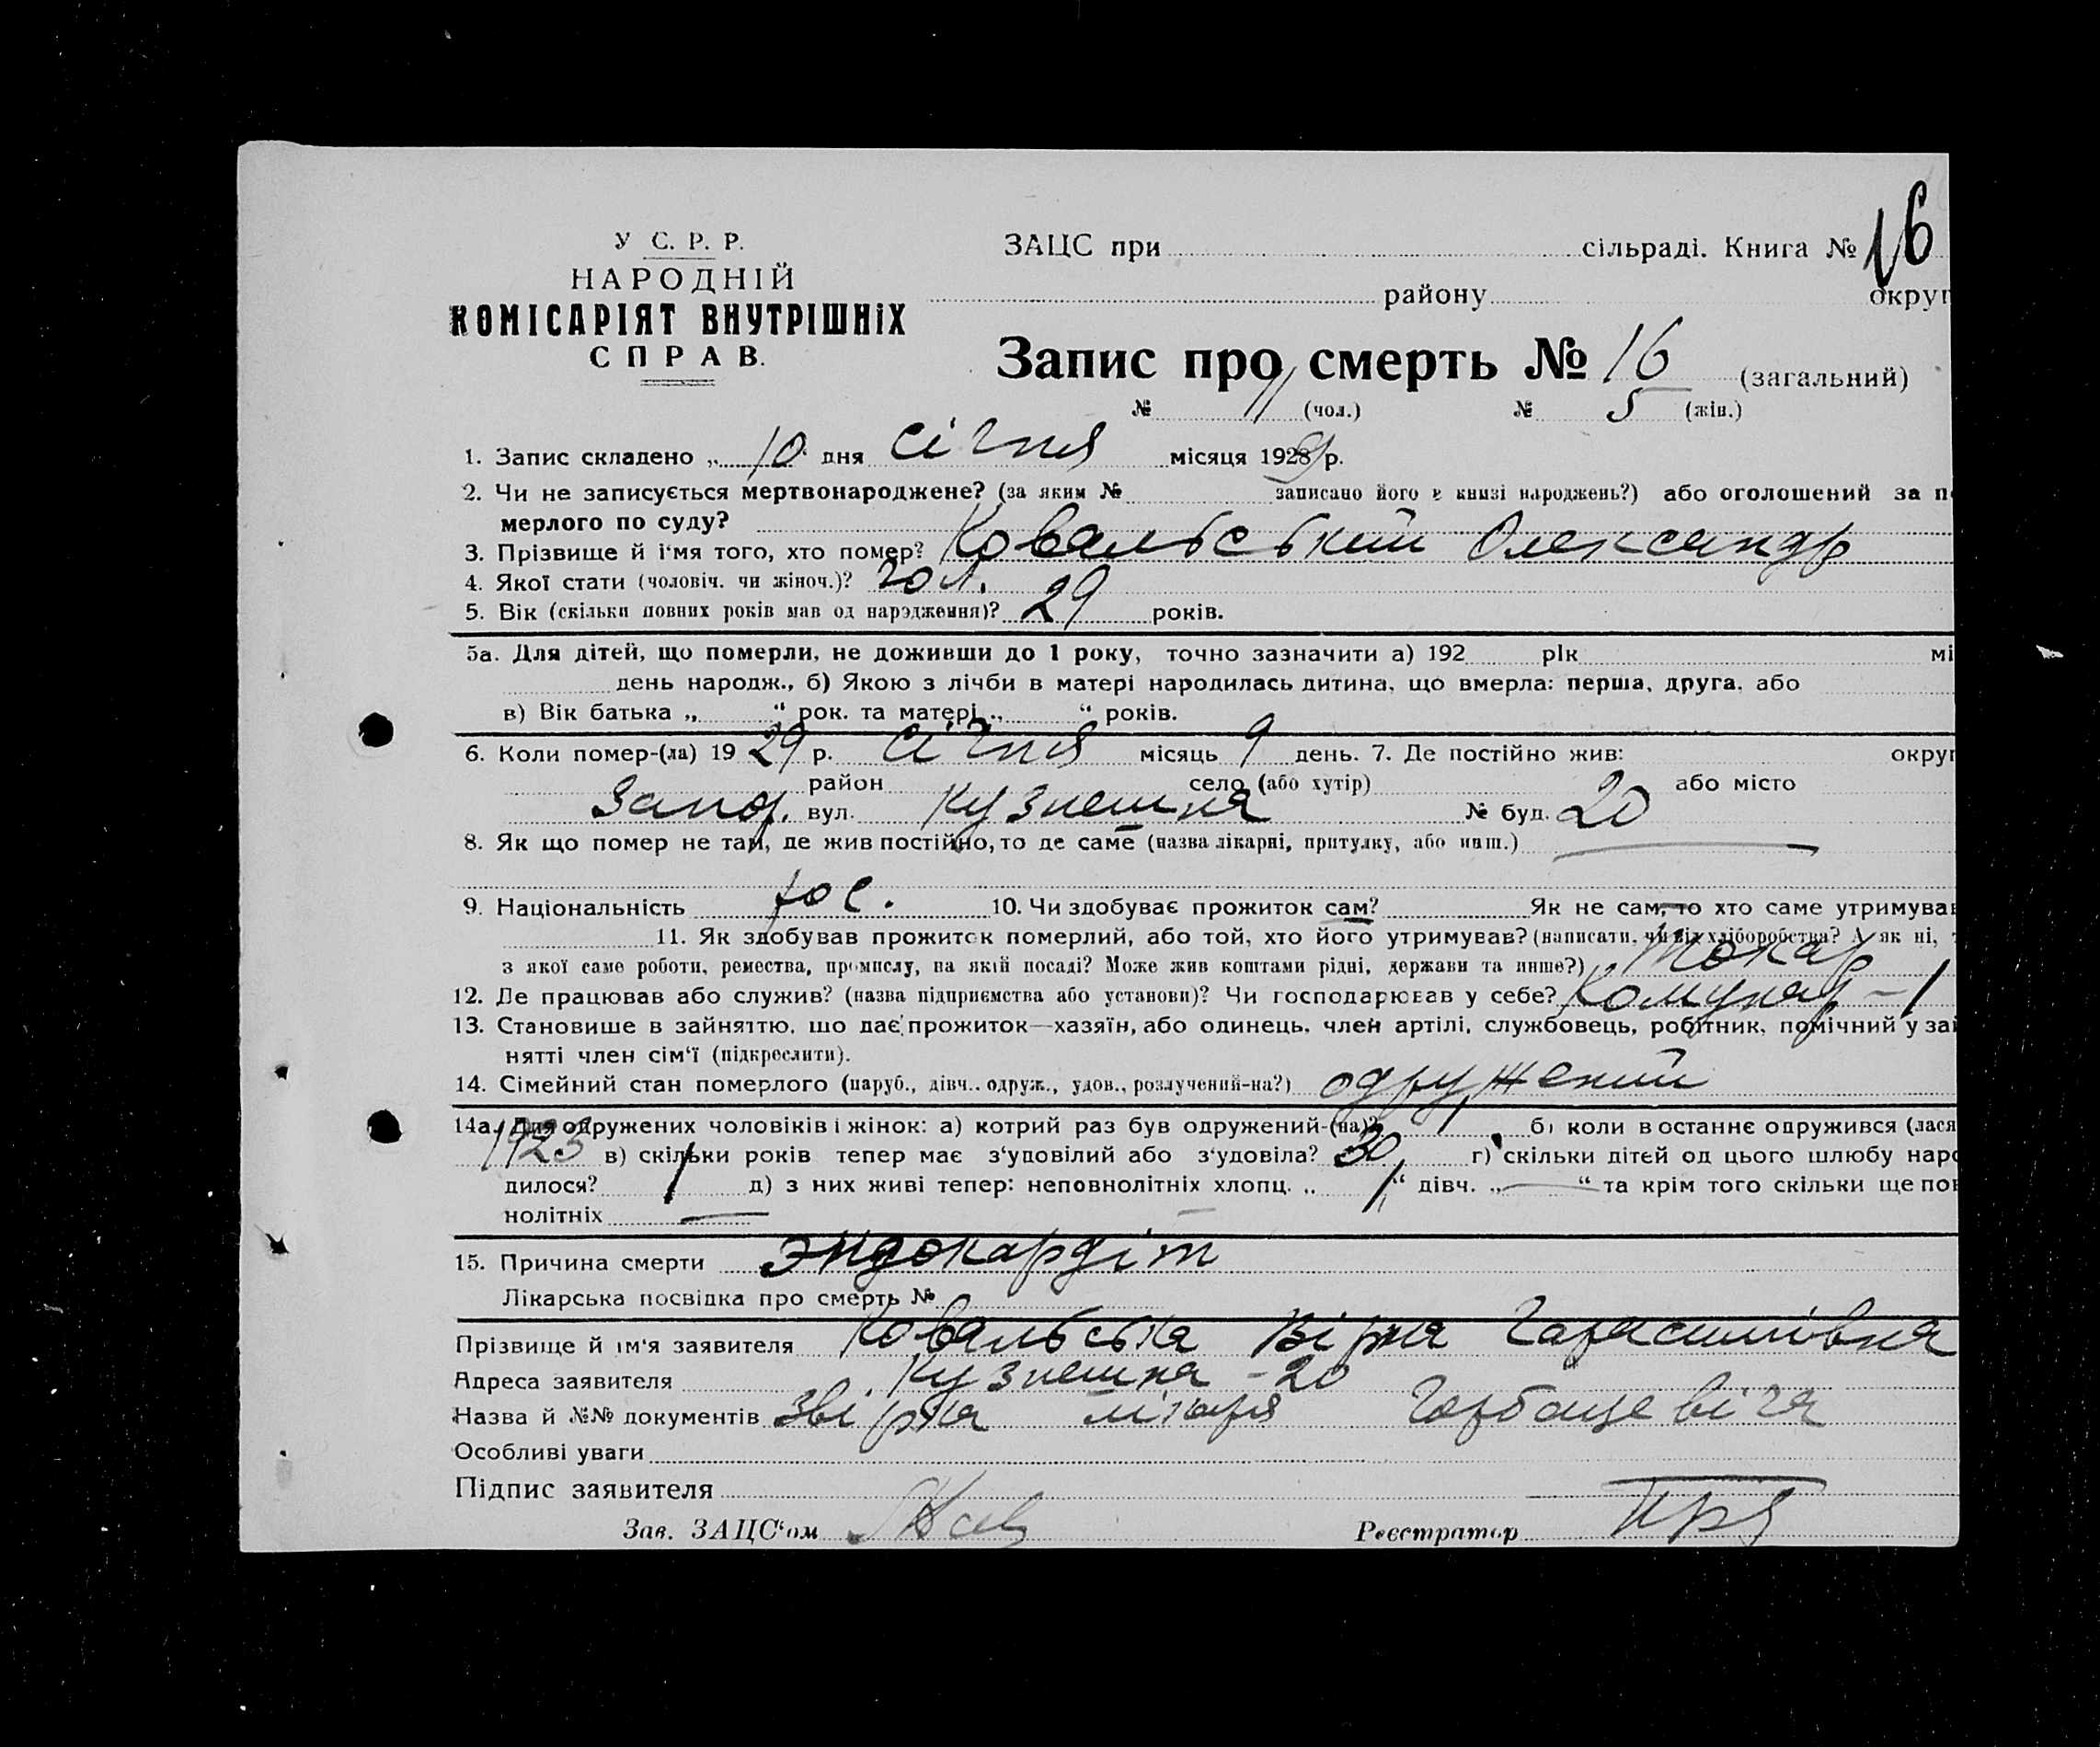 У С. Р. Р.
НАРОДНІЙ
КОМІСАРІЯТ ВНУТРІШНІХ
СПРАВ.
ЗАЦС при сільраді. Книга № 16
району округ
Запис про смерть № 16 (загальний)
№ 11 (чол.) № 5 (жін.)
1. Запис складено „ 10 " дня січня місяця 1929 р.
2. Чи не записується мертвонароджене? (за яким № записано його в книзі народжень?) або оголошений за по
мерлого по суду?
3. Прізвище й і'мя того, хто помер? Ковальський Олександр
4. Якої стати (чоловіч. чи жіноч.)? чол.
5. Вік (скільки повних років мав од народження)? 29 років.
5а. Для дітей, що померли, не доживши до 1 року, точно зазначити а) 192 рік мі
день народж., б) Якою з лічби в матері народилась дитина, що вмерла: перша, друга, або
в) Вік батька „ “ рок. та матері „ “ років.
6. Коли помер-(ла) 19 29 р. січня місяць 9 день. 7. Де постійно жив: округ
район село (або хутір) або місто
Запор. вул. Кузнешна № буд. 20
8. Як що помер не там, де жив постійно, то де саме (назва лікарні, притулку, або инш.) —
9. Національність рос. 10. Чи здобуває прожиток сам? Як не сам, то хто саме утримував
11. Як здобував прожиток померлий, або той, хто його утримував? (написати, чи від хліборобства? А як ні, т
з якої саме роботи, ремества, промислу, на якій посаді? Може жив коштами рідні, держави та инше?) Токар
12. Де працював або служив? (назва підприємства або установи)? Чи господарював у себе? Комунар – 1
13. Становище в зайняттю, що дає прожиток—хазяїн, або одинець, член артілі, службовець, робітник, помічний у зай
нятті член сім‘ї (підкреслити).
14. Сімейний стан померлого (паруб., дівч.. одруж., удов., розлучений-на?) одружений
14а. Для одружених чоловіків і жінок: а) котрий раз був одружений-(на)? 1 б) коли в останнє одружився (лася
1923 в) скільки років тепер має з‘удовілий або з‘удовіла? 30 г) скільки дітей од цього шлюбу наро
дилося? 1 д) з них живі тепер: неповнолітніх хлопц. „ 1 “ дівч. „ — “ та крім того скільки ще пов
нолітніх —
15. Причина смерти Эндокардіт
Лікарська посвідка про смерть №
Прізвище й ім‘я заявителя Ковальська Віра Гарасимівна
Адреса заявителя Кузнешна - 20
Назва й №№ документів Звірка лікаря
Особливі уваги
Підпис заявителя
Зав. ЗАЦС‘ом Реєстратор